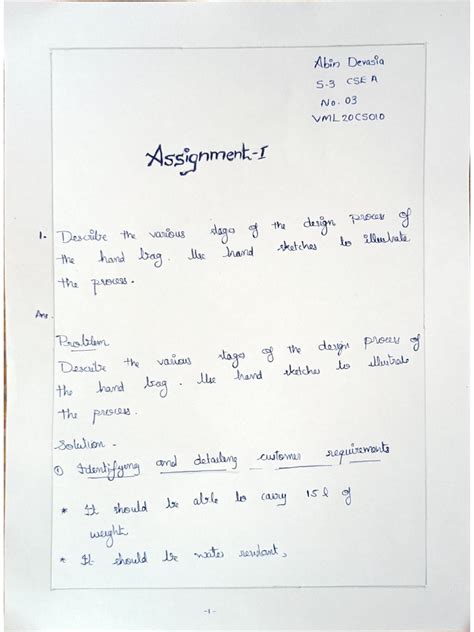 Abin Devasia
S-3 CSE A
No. 03
VML20CS010
Assignment-I
1. Describe the various stages of the design process of
the hand bag. Use hand sketches to illustrate
the process.
Ans.
Problem
Describe the various stages of the design process of
the hand bag. Use hand sketches to illustrate
the process.
Solution -
① Identifying and detailing customer requirements
* It should be able to carry 15 l of
weight
* It should be water resistant,
-1-